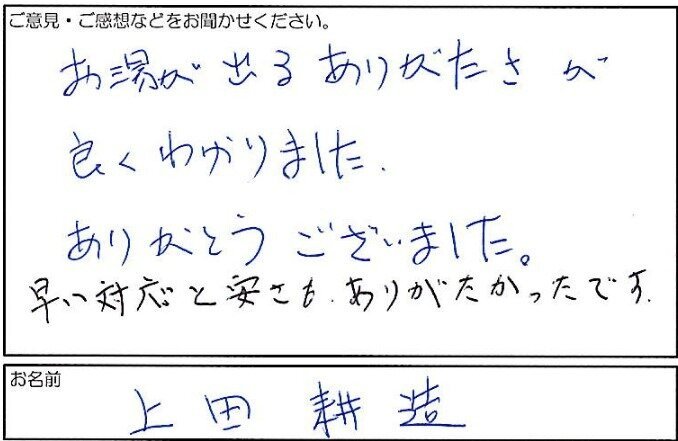 ご意見・ご感想などをお聞かせください。
お湯が出るありがたさが
良くわかりました.
ありがとうございました。
早い対応と安さも、ありがたかったです.
お名前
上田 耕造